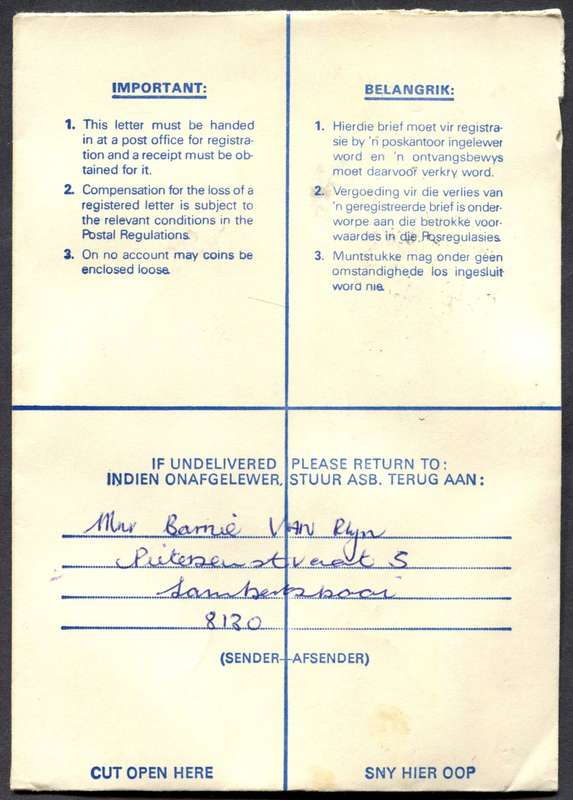 IMPORTANT:
1. This letter must be handed
in at a post office for registra-
tion and a receipt must be ob-
tained for it.
2. Compensation for the loss of a
registered letter is subject to
the relevant conditions in the
Postal Regulations.
3. On no account may coins be
enclosed loose.
BELANGRIK:
1. Hierdie brief moet vir registra-
sie by 'n poskantoor ingelewer
word en 'n ontvangsbewys
moet daarvoor verkry word.
2. Vergoeding vir die verlies van
'n geregistreerde brief is onder-
worpe aan die betrokke voor-
waardes in die Posregulasies.
3. Muntstukke mag onder geen
omstandighede los ingesluit
word nie.
IF UNDELIVERED PLEASE RETURN TO:
INDIEN ONAFGELEWER, STUUR ASB. TERUG AAN:
Mnr Barnie VAN Ryn
Pietersenstraat 5
Lambertsbaai
8130
(SENDER–AFSENDER)
CUT OPEN HERE
SNY HIER OOP